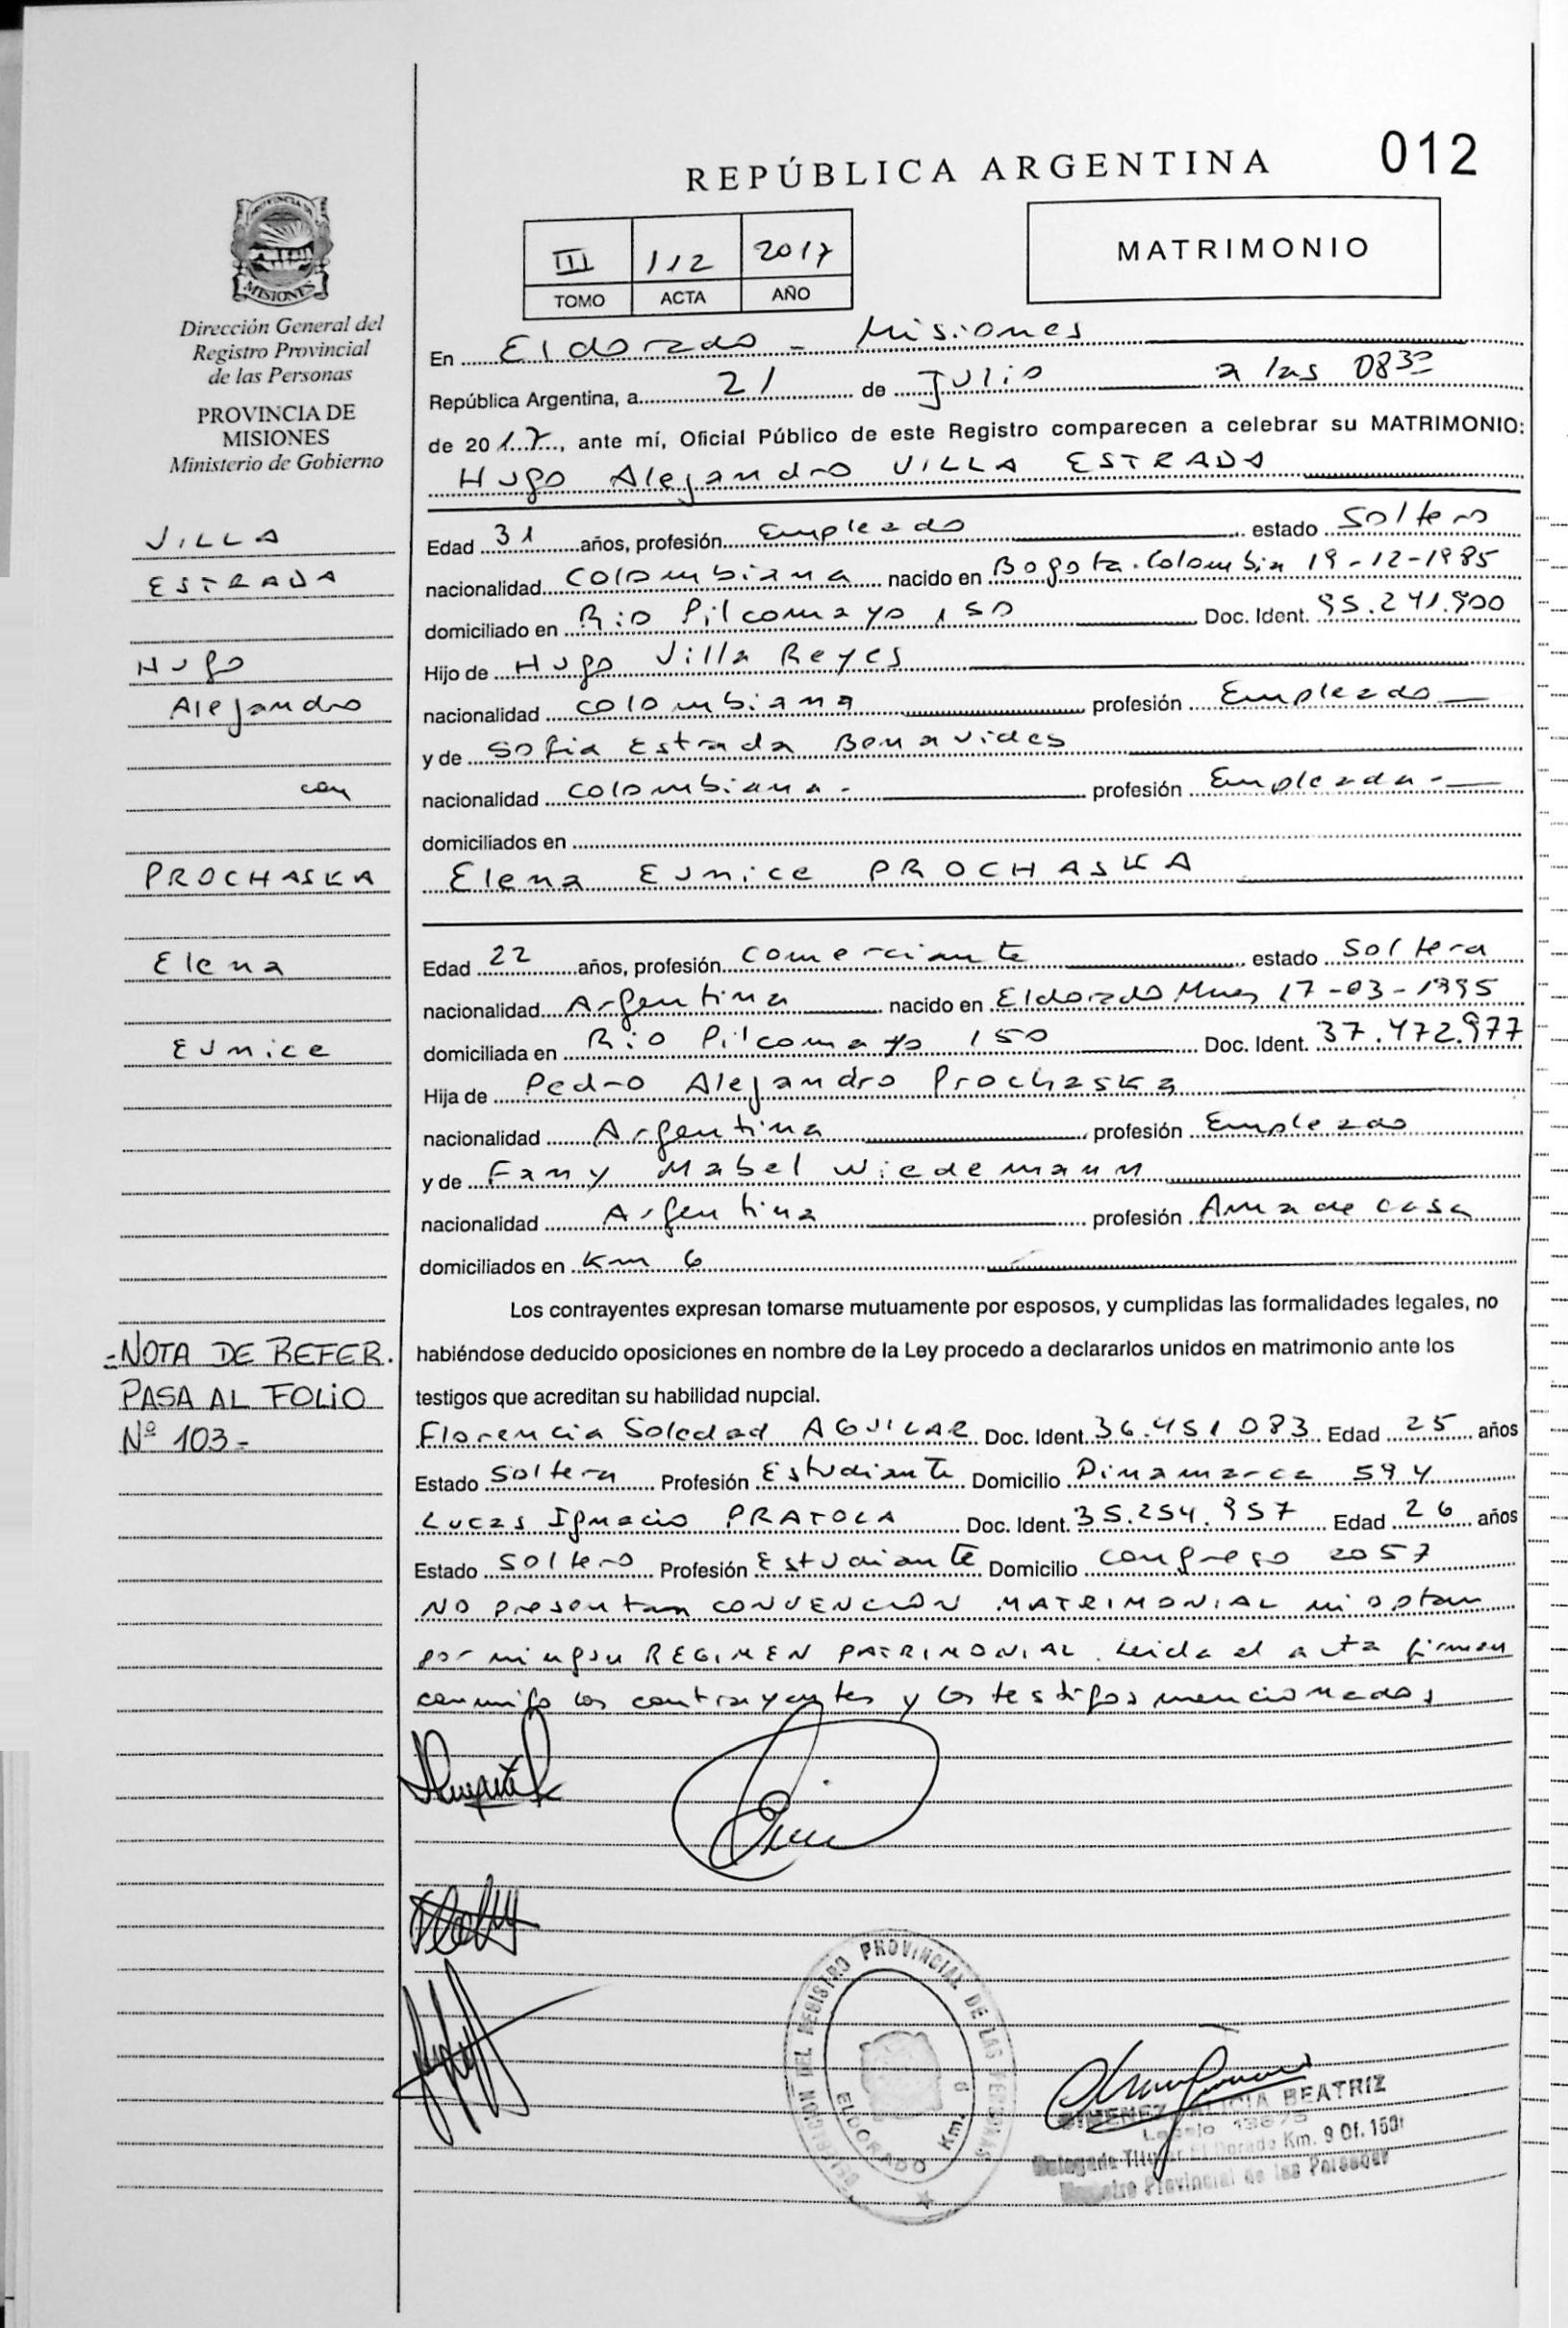 REPÚBLICA ARGENTINA 012
PROVINCIA DE
MISIONES
III 112 2017
TOMO ACTA AÑO
MATRIMONIO
Dirección General del
Registro Provincial
de las Personas
PROVINCIA DE
MISIONES
Ministerio de Gobierno
VILLA
ESTRADA
Hugo
Alejandro
con
PROCHASKA
Elena
Eunice
-NOTA DE REFER.
PASA AL FOLIO
Nº 103-
En Eldorado - Misiones
República Argentina, a 21 de Julio a las 08 30
de 2017, ante mí, Oficial Público de este Registro comparecen a celebrar su MATRIMONIO:
Hugo Alejandro VILLA ESTRADA
Edad 31 años, profesión Empleado estado Soltero
nacionalidad Colombiana nacido en Bogota. Colombia 19-12-1985
domiciliado en Rio Pilcomayo 150 Doc. Ident. 95.241.900
Hijo de Hugo Villa Reyes
nacionalidad colombiana profesión Empleado
y de Sofia Estrada Benavides
nacionalidad colombiana - profesión Empleada -
domiciliados en
Elena Eunice PROCHASKA
Edad 22 años, profesión comerciante estado Soltera
nacionalidad Argentina nacido en Eldorado Mnes 17-03-1995
domiciliada en Rio Pilcomayo 150 Doc. Ident. 37.472.977
Hija de Pedro Alejandro Prochaska
nacionalidad Argentina profesión Empleado
y de Fany Mabel Wiedemann
nacionalidad Argentina profesión Ama de casa
domiciliados en Km 6
Los contrayentes expresan tomarse mutuamente por esposos, y cumplidas las formalidades legales, no
habiéndose deducido oposiciones en nombre de la Ley procedo a declararlos unidos en matrimonio ante los
testigos que acreditan su habilidad nupcial.
Florencia Soledad AGUILAR Doc. Ident. 36.451.083 Edad 25 años
Estado Soltera Profesión Estudiante Domicilio Dinamarca 594
Lucas Ignacio PRATOLA Doc. Ident. 35.254.957 Edad 26 años
Estado Soltero Profesión Estudiante Domicilio congreso 2057
NO presentan CONVENCIÓN MATRIMONIAL ni optan
por ningun REGIMEN PATRIMONIAL. Leida el acta firman
conmigo los contrayentes y los testigos mencionados
DELEGACIÓN DEL REGISTRO PROVINCIAL DE LAS PERSONAS
ELDORADO Km. 9
GIMENEZ ALICIA BEATRIZ
Legajo 13675
Delegada Titular El Dorado Km. 9 Of. 1501
Registro Provincial de las Personas